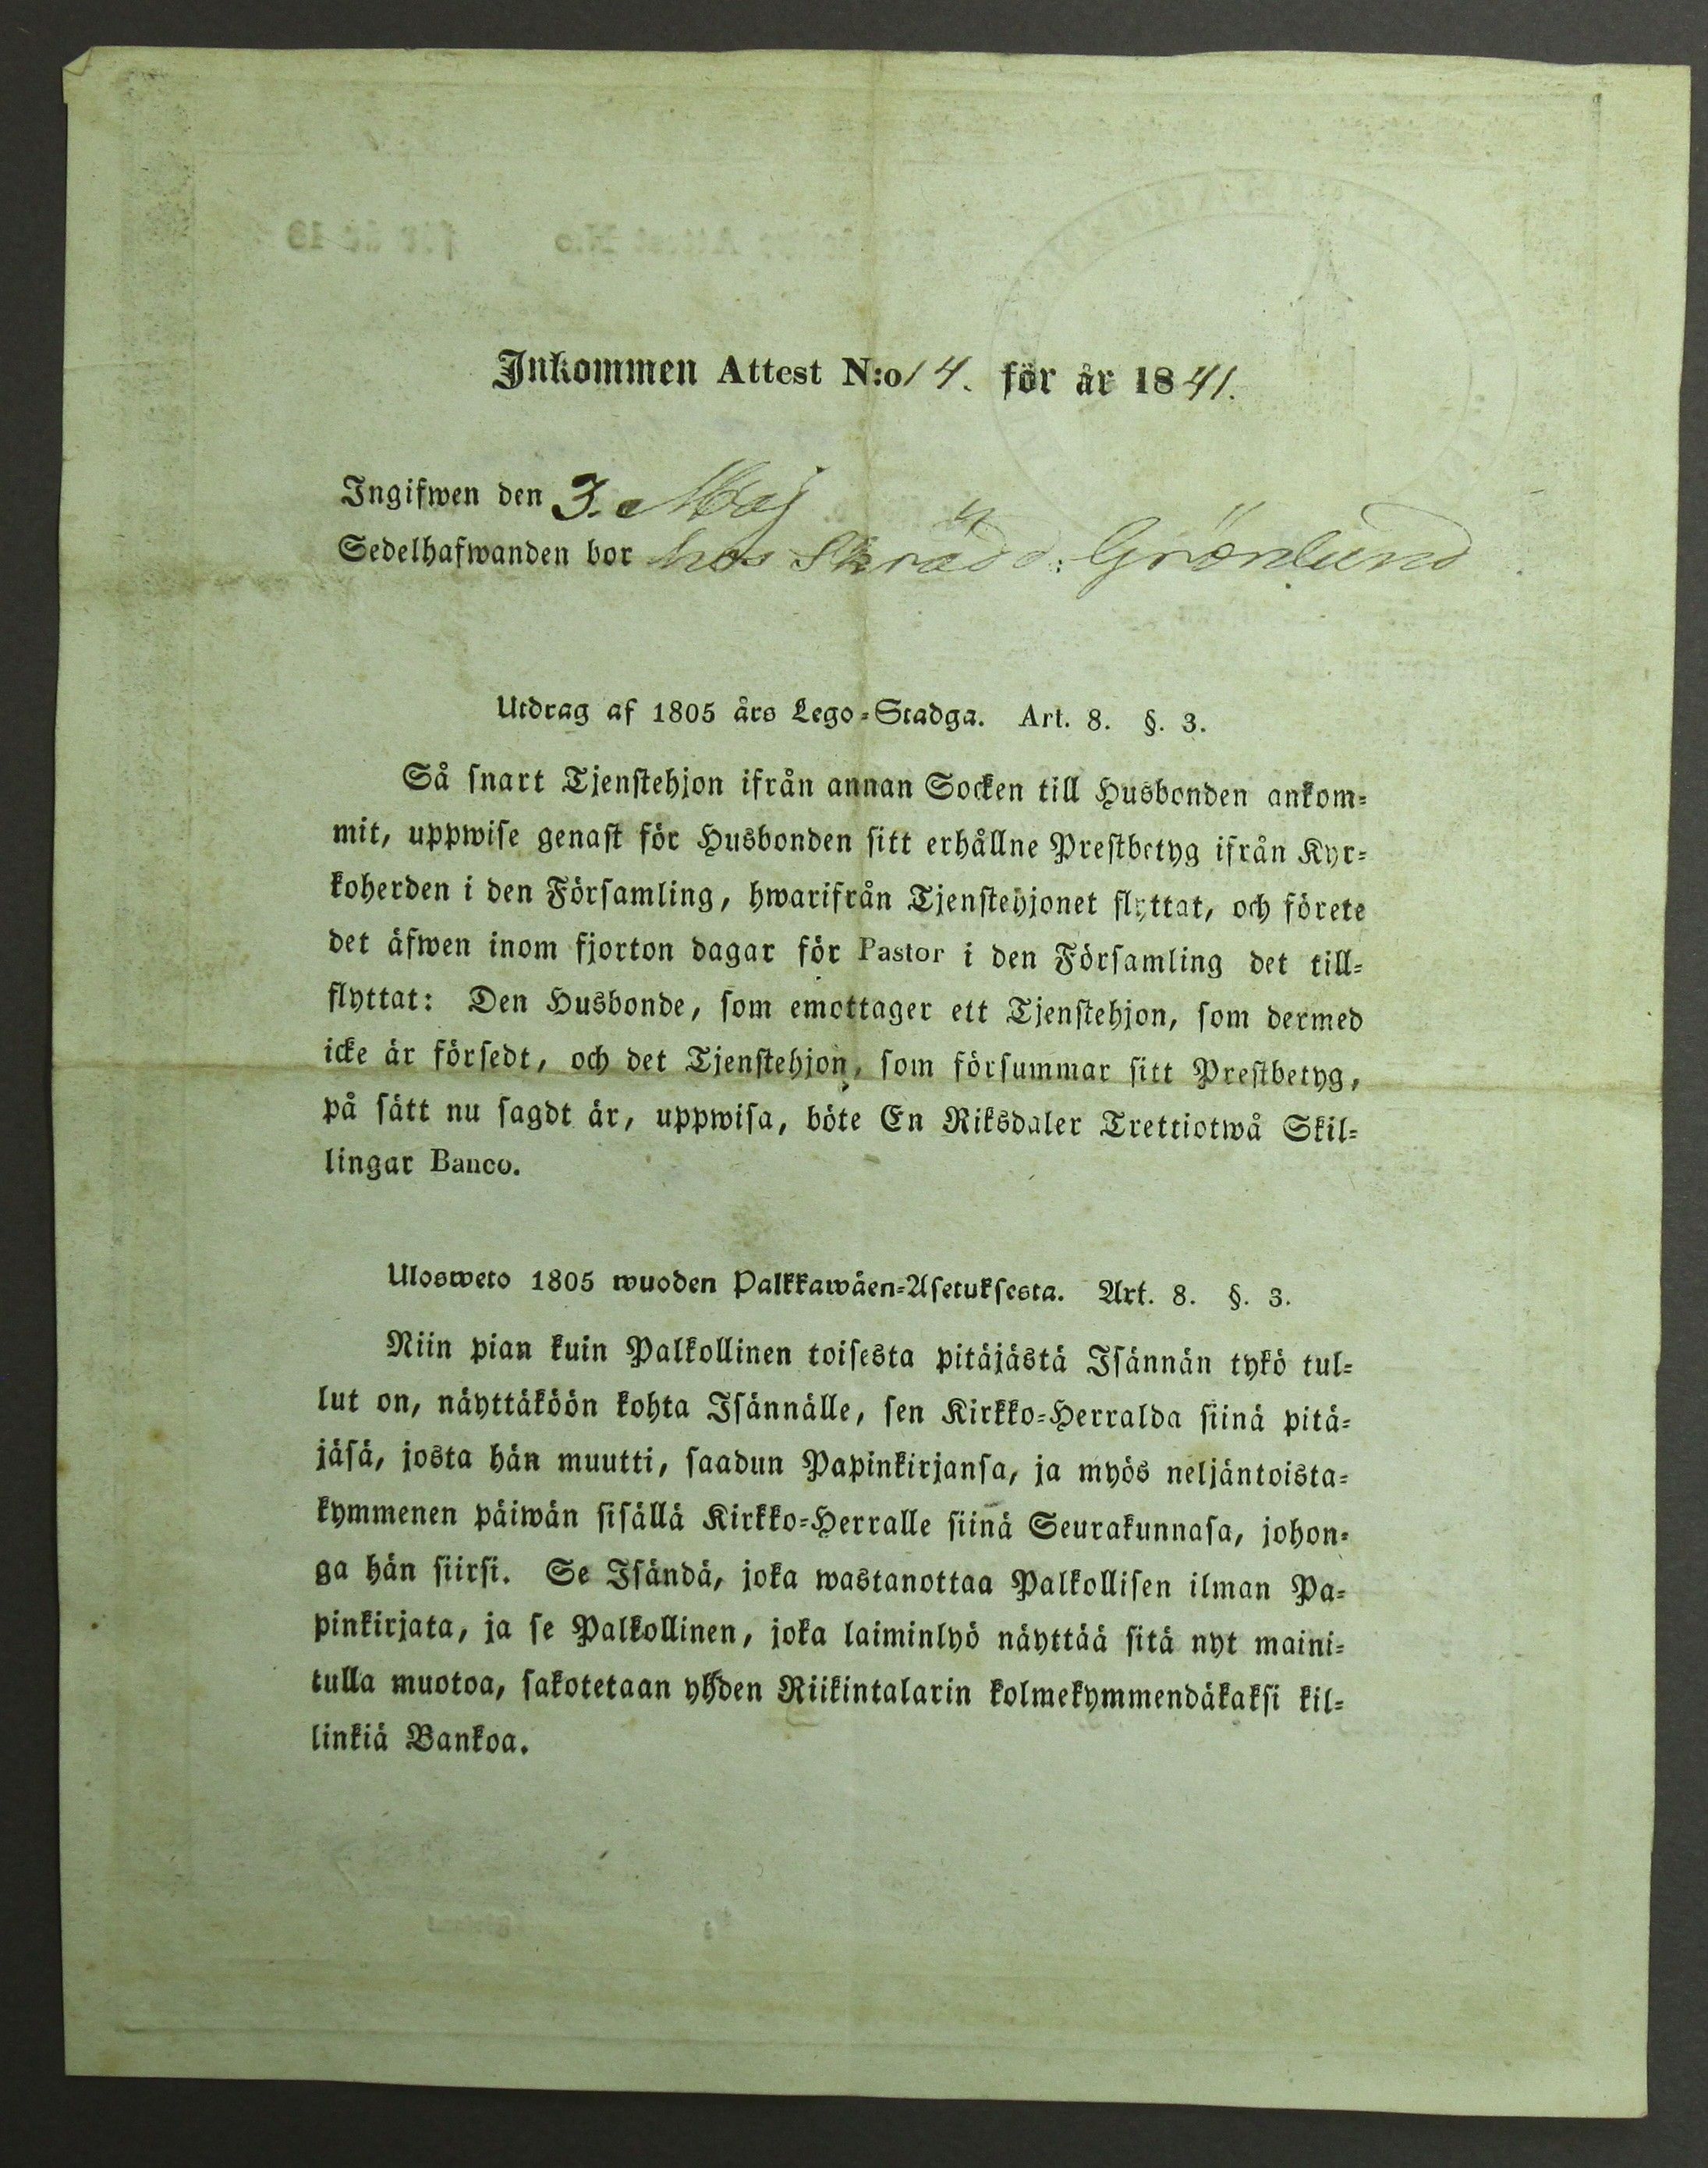 Inkommen Attest N:o 14. för år 1841.
Ingifwen den 3. Maj
Sedelhafwanden bor hos Skrädd: Grönlund
Utdrag af 1805 års Lego-Stadga. Art. 8. §. 3.
Så snart Tjenstehjon ifrån annan Socken till Husbonden ankom-
mit, uppwise genast för Husbonden sitt erhållne Prestbetyg ifrån Kyr-
koherden i den Församling, hwarifrån Tjenstehjonet flyttat, och förete
det äfwen inom fjorton dagar för Pastor i den Församling det till-
flyttat: Den Husbonde, som emottager ett Tjenstehjon, som dermed
icke är försedt, och det Tjenstehjon, som försummar sitt Prestbetyg,
på sätt nu sagdt är, uppwisa, böte En Riksdaler Trettiotwå Skil-
lingar Banco.
Ulosweto 1805 wuoden Palkkawäen-Asetuksesta. Art. 8. §. 3.
Niin pian kuin Palkollinen toisesta pitäjästä Isännän tykö tul-
lut on, näyttäköön kohta Isännälle, sen Kirkko-Herralda siinä pitä-
jäsä, josta hän muutti, saadun Papinkirjansa, ja myös neljäntoista-
kymmenen päiwän sisällä Kirkko-Herralle siinä Seurakunnasa, johon-
ga hän siirsi. Se Isändä, joka wastanottaa Palkollisen ilman Pa-
pinkirjata, ja se Palkollinen, joka laiminlyö näyttää sitä nyt maini-
tulla muotoa, sakotetaan yhden Riikintalarin kolmekymmendäkaksi kil-
linkiä Bankoa.